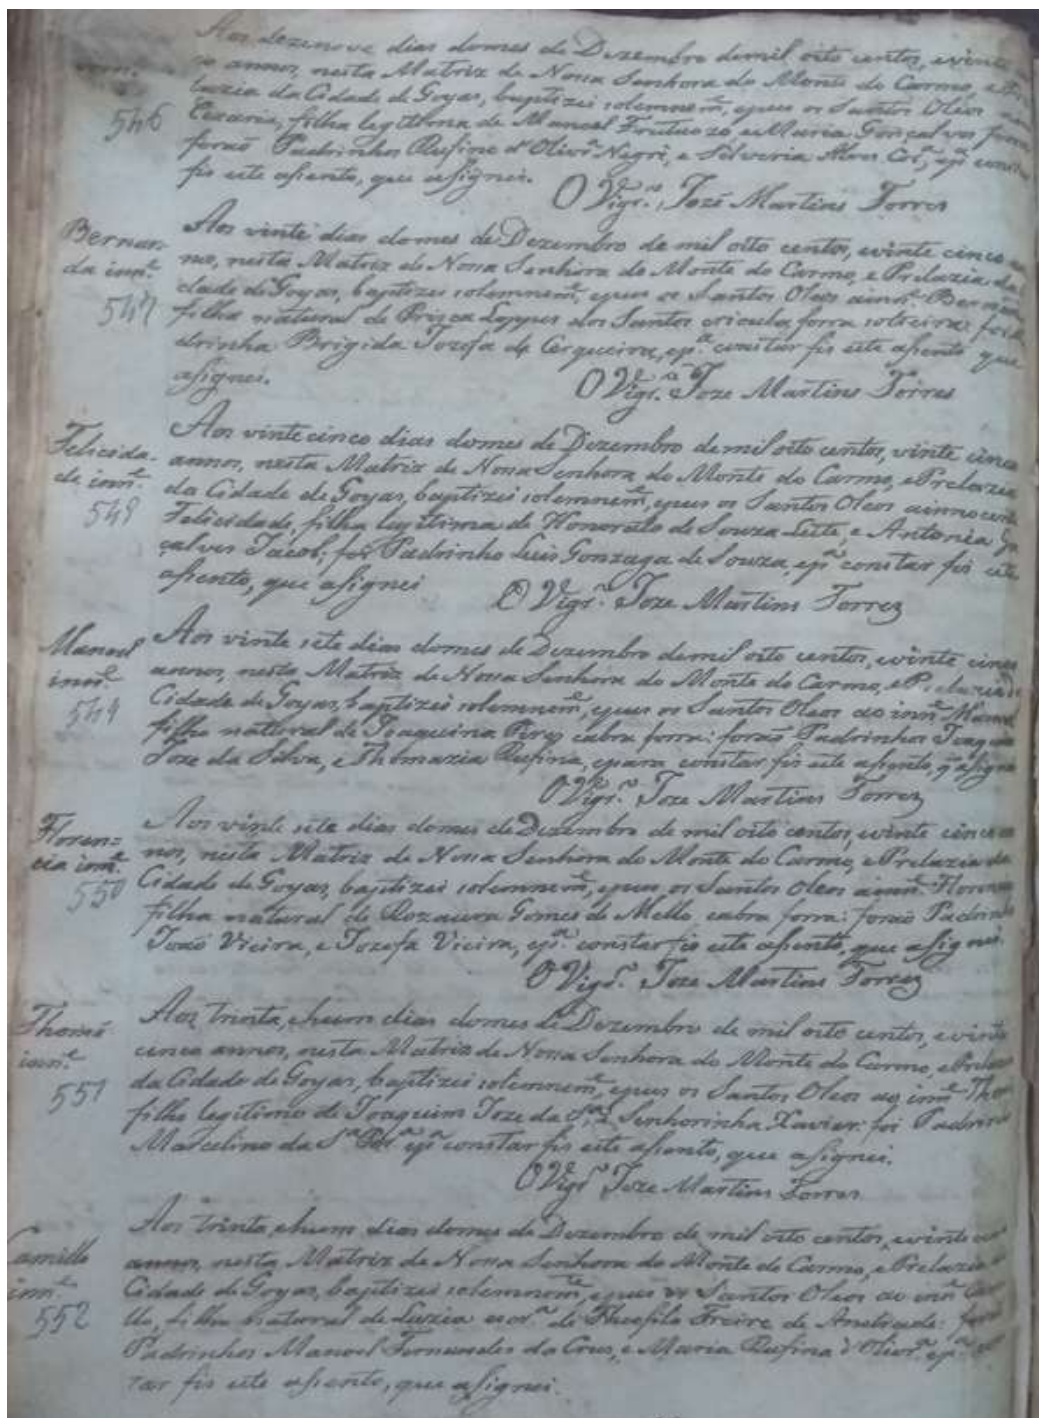 Aos dezenove dias domes de Dezembro demil oito centos, evinte
co annos, nesta Matriz de Nossa Senhora do Monte do Carmo, e
innᵉ.
lazia da Cidade de Goyas, baptizei solemnemᵉ, epus os Santos Oleos
546
Cezaria, filha legitima de Manoel Frutuozo, e Maria Gonçalves forra
foraõ Padrinhos Rufino d'Olivʳᵃ Negrᵉ, e Silveria Alves epᵃ
fis este asento, que asignei.
O Vigrᵒ. Jozé Martins Torres
Bernar-
da innᵉ.
547
Aos vinte dias domes de Dezembro de mil oito centos, evinte cinco an
nos, nesta Matriz de Nossa Senhora do Monte do Carmo, e Prelazia da
dade de Goyas, baptizei solemnemᵉ, epus os Santos Oleos ainnᵉ. Bernarda
filha natural de Prisca Loppes dos Santos cricula forra solteira: foi
drinha Brigida Jozefa de Cerqueira, epᵃ. constar fis este asento que
asignei.
O Vigrᵒ. Joze Martins Torres
Felicida-
de innᵉ.
548
Aos vinte cinco dias domes de Dezembro demil oito centos, vinte cinco
annos, nesta Matriz de Nossa Senhora do Monte do Carmo, e Prelazia
da Cidade de Goyas, baptizei solemnemᵉ, epus os Santos Oleos ainnocente
Felicidade, filha legitima de Honorato de Souza Leite, e Antonia Gon
çalves Jacob: foi Padrinho Luis Gonzaga de Souza, epᵃ constar fis este
asento, que asignei
O Vigrᵒ. Joze Martins Torrez
Manoel
innᵉ.
549
Aos vinte sete dias domes de Dezembro demil oito centos, evinte cinco
annos, nesta Matriz de Nossa Senhora do Monte do Carmo, e Prelazia da
Cidade de Goyas, baptizei solemnemᵉ, epus os Santos Oleos ao innᵉ Manoel
filho natural de Joaquina Pires cabra forra: foraõ Padrinhos Joaquim
Joze da Silva, e Thomazia Rufina, epara constar fis este asento, q̃ asignei
O Vigrᵒ. Joze Martins Torrez
Floren=
cia innᵉ.
550
Aos vinte sete dias domes de Dezembro de mil oito centos, evinte cinco an
nos, nesta Matriz de Nossa Senhora do Monte do Carmo, e Prelazia da
Cidade de Goyas, baptizei solemnemᵉ, epus os Santos Oleos ainnᵉ. Florencia
filha natural de Rozaura Gomes de Mello, cabra forra: foraõ Padrinhos
Joaõ Vieira, e Jozefa Vieira, epᵃ. constar fis este asento, que asignei.
O Vigrᵒ. Joze Martins Torrez
Thomé
innᵉ
551
Aos trinta, ehum dias domes de Dezembro de mil oito centos, evinte
cinco annos, nesta Matriz de Nossa Senhora do Monte do Carmo, e Prelazia
da Cidade de Goyas, baptizei solemnemᵉ, epus os Santos Oleos ao innᵉ Thomé
filho legitimo de Joaquim Joze da Sᵃ, e Senhorinha Xavier: foi Padrinho
Marcelino da Sᵃ epᵃ constar fis este asento, que asignei.
O Vigrᵒ Joze Martins Torres
Camillo
innᵉ.
552
Aos trinta, ehum dias domes de Dezembro de mil oito centos, evinte
annos, nesta Matriz de Nossa Senhora do Monte do Carmo, e Prelazia
Cidade de Goyas, baptizei solemnemᵉ, epus os Santos Oleos ao innᵉ Cami
llo, filho natural de Luzia escrᵃ de Theofilo Freire de Andrade: foraõ
Padrinhos Manoel Fernandes da Crus, e Maria Rufina d'Olivʳᵃ. epᵃ
tar fis este asento, que asignei.